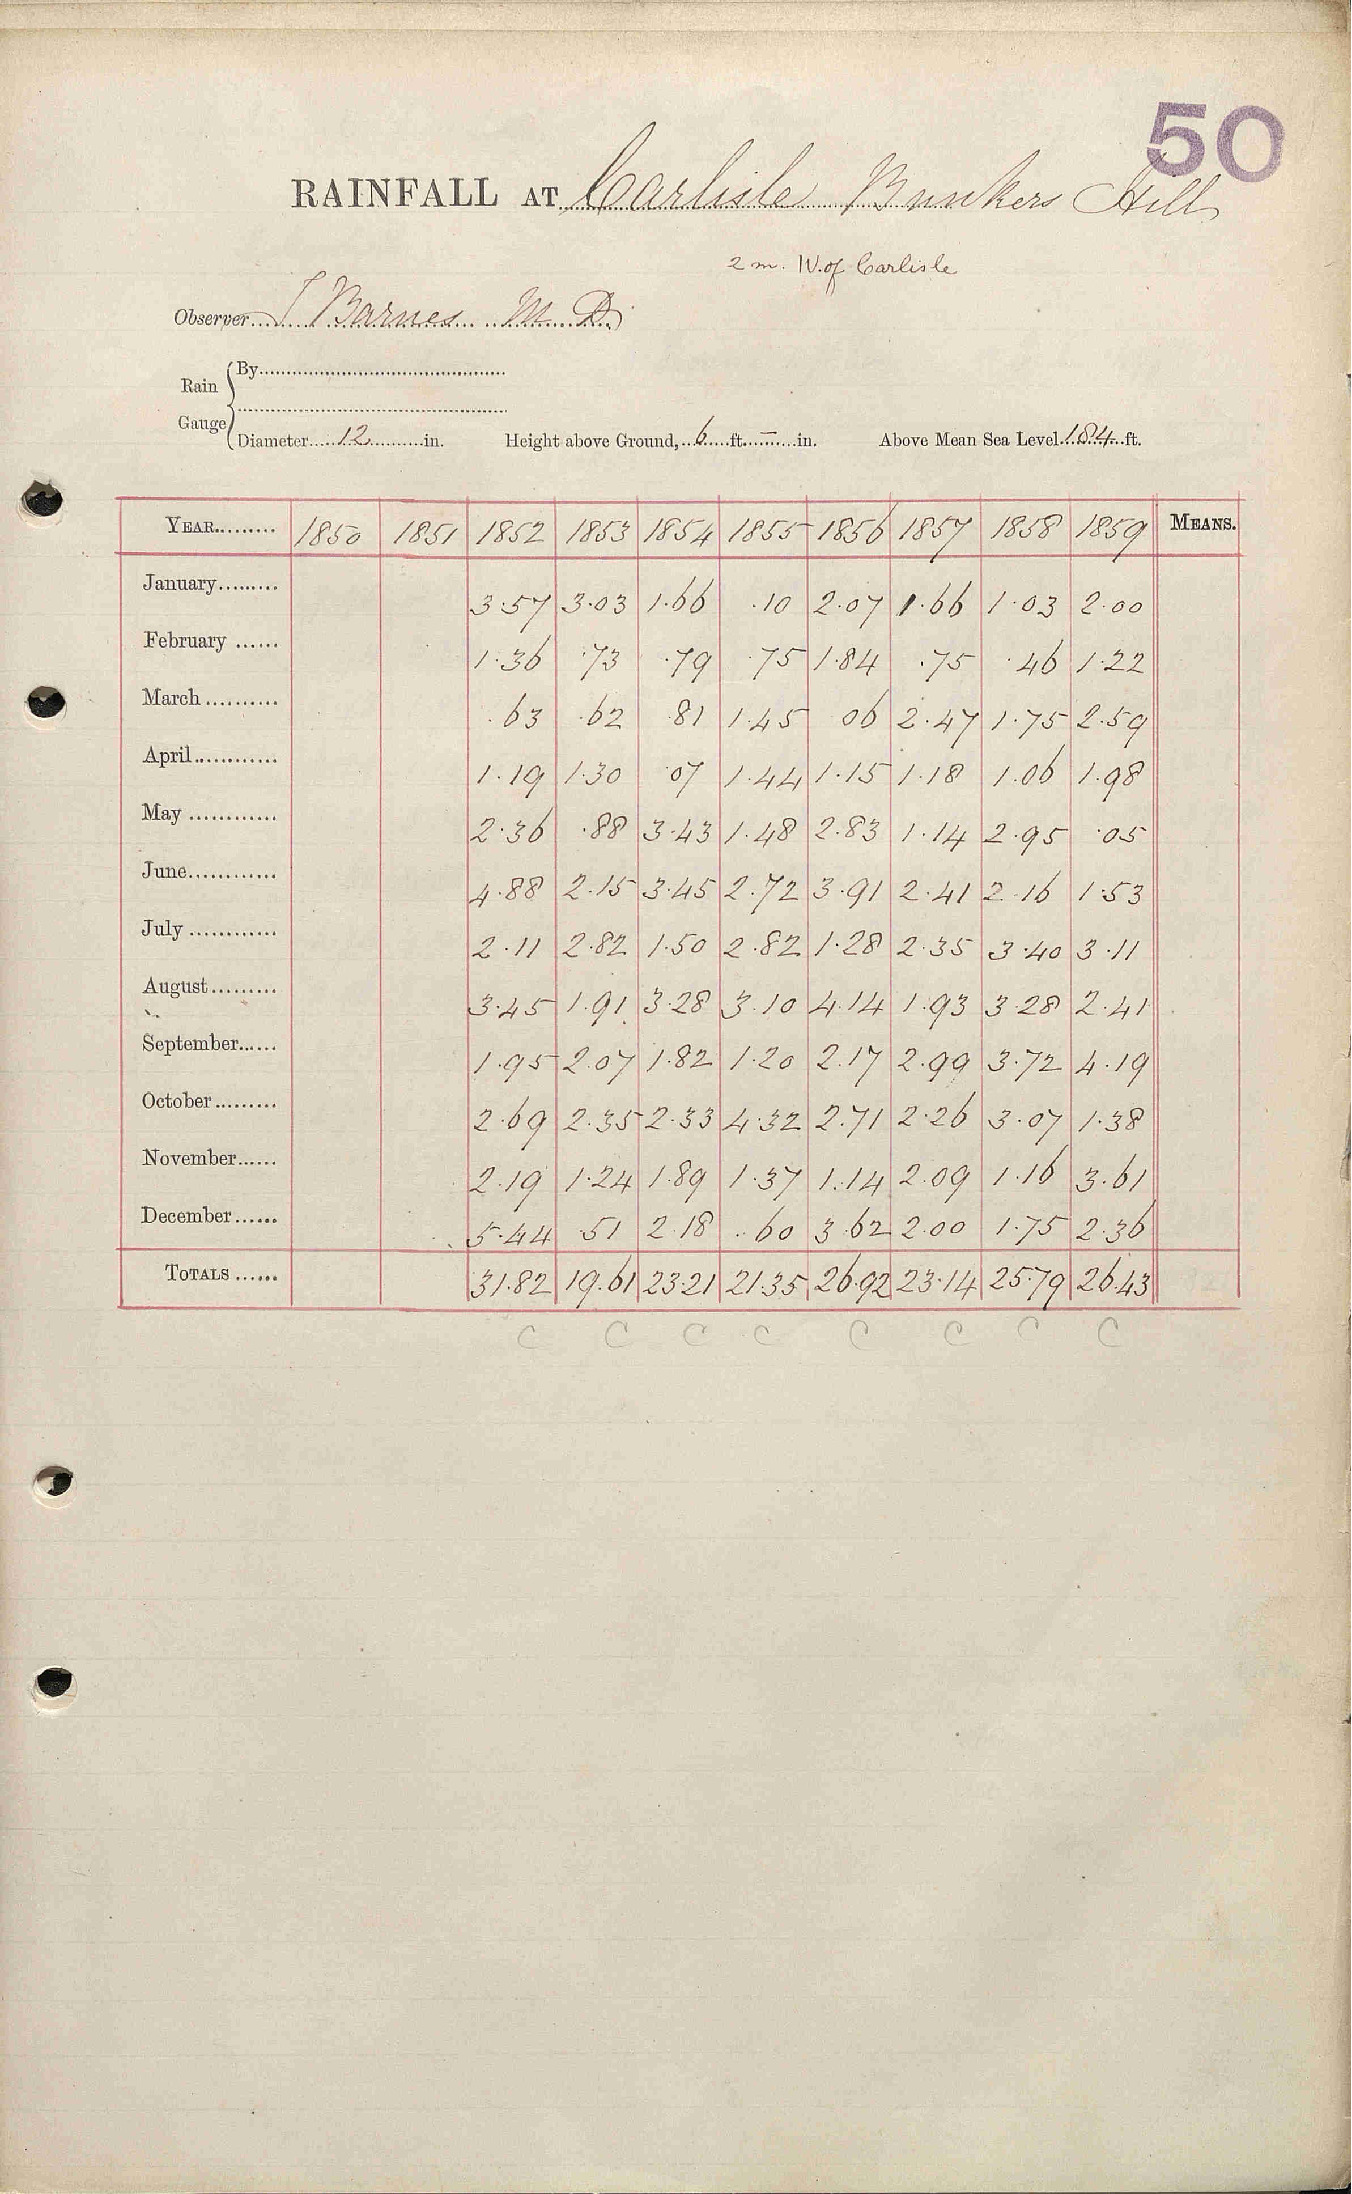 50
RAINFALL AT Carlisle Bunkers Hill
2 m. W. of Carlisle
Observer T Barnes M. D.
Rain Gauge
By
Diameter 12 in. Height above Ground, 6 ft. – in. Above Mean Sea Level 184 ft.
YEAR 1850 1851 1852 1853 1854 1855 1856 1857 1858 1859 MEANS.
January 3.57 3.03 1.66 .10 2.07 1.66 1.03 2.00
February 1.36 .73 .79 .75 1.84 .75 .46 1.22
March .63 .62 .81 1.45 06 2.47 1.75 2.59
April 1.19 1.30 .07 1.44 1.15 1.18 1.06 1.98
May 2.36 .88 3.43 1.48 2.83 1.14 2.95 .05
June 4.88 2.15 3.45 2.72 3.91 2.41 2.16 1.53
July 2.11 2.82 1.50 2.82 1.28 2.35 3.40 3.11
August 3.45 1.91 3.28 3.10 4.14 1.93 3.28 2.41
September 1.95 2.07 1.82 1.20 2.17 2.99 3.72 4.19
October 2.69 2.35 2.33 4.32 2.71 2.26 3.07 1.38
November 2.19 1.24 1.89 1.37 1.14 2.09 1.16 3.61
December 5.44 .51 2.18 .60 3.62 2.00 1.75 2.36
TOTALS 31.82 19.61 23.21 21.35 26.92 23.14 25.79 26.43
C C C C C C C C